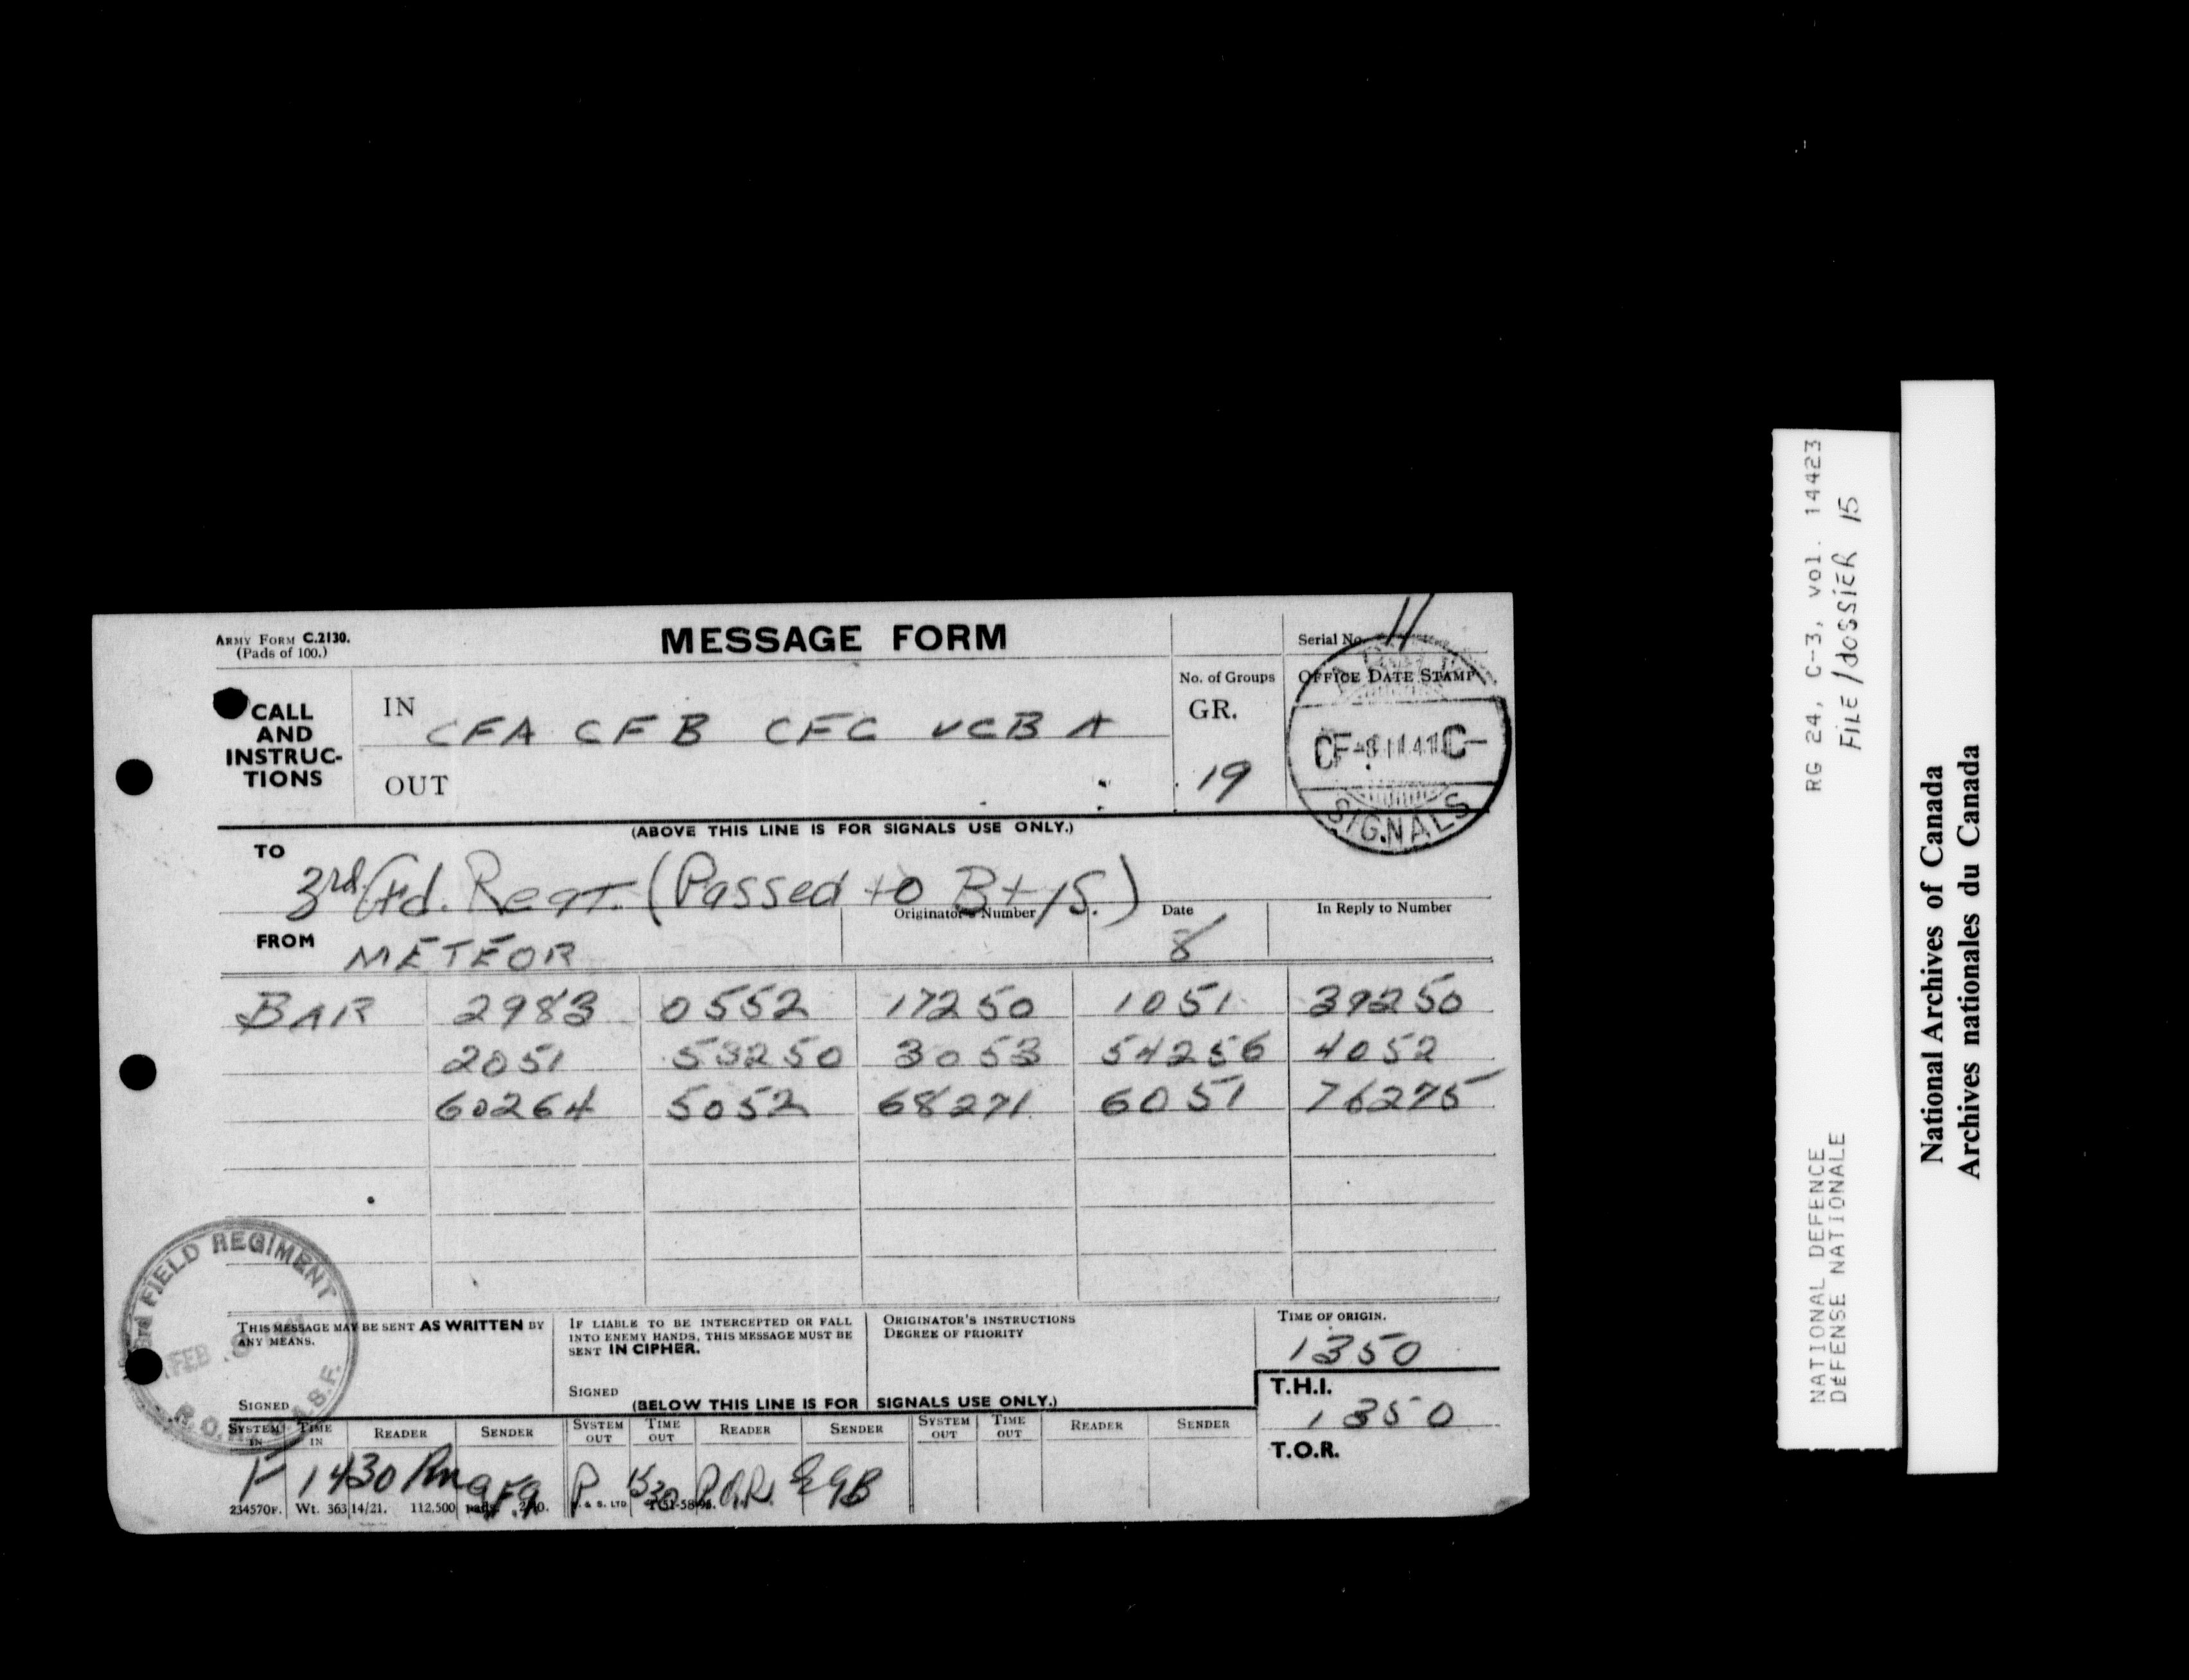 ARMY FORM C.2130.
(Pads of 100.)
MESSAGE FORM
Serial No. 11
CALL
AND
INSTRUC-
TIONS
IN CFA CFB CFC VCB A
OUT
No. of Groups
GR.
19
OFFICE DATE STAMP
SIGNALS
(ABOVE THIS LINE IS FOR SIGNALS USE ONLY.)
TO
3rd Fd. Regt. (Passed to Bty's.)
FROM METEOR
Originator's Number
Date
8
In Reply to Number
BAR 2983 0552 17250 1051 39250
2051 53250 3053 54256 4052
60264 5052 68271 6051 76275
3rd FIELD REGIMENT
FEB 8
THIS MESSAGE MAY BE SENT AS WRITTEN BY
ANY MEANS.
SIGNED
IF LIABLE TO BE INTERCEPTED OR FALL
INTO ENEMY HANDS, THIS MESSAGE MUST BE
SENT IN CIPHER.
SIGNED
ORIGINATOR'S INSTRUCTIONS
DEGREE OF PRIORITY
(BELOW THIS LINE IS FOR SIGNALS USE ONLY.)
TIME OF ORIGIN.
1350
T.H.I.
1350
T.O.R.
SYSTEM IN TIME IN READER SENDER SYSTEM OUT TIME OUT READER SENDER SYSTEM OUT TIME OUT READER SENDER
1430
234570F. Wt. 363 14/21. 112,500 pads.
RG 24, C-3, vol. 14423
FILE/DOSSIER 15
NATIONAL DEFENCE
DEFENSE NATIONALE
National Archives of Canada
Archives nationales du Canada